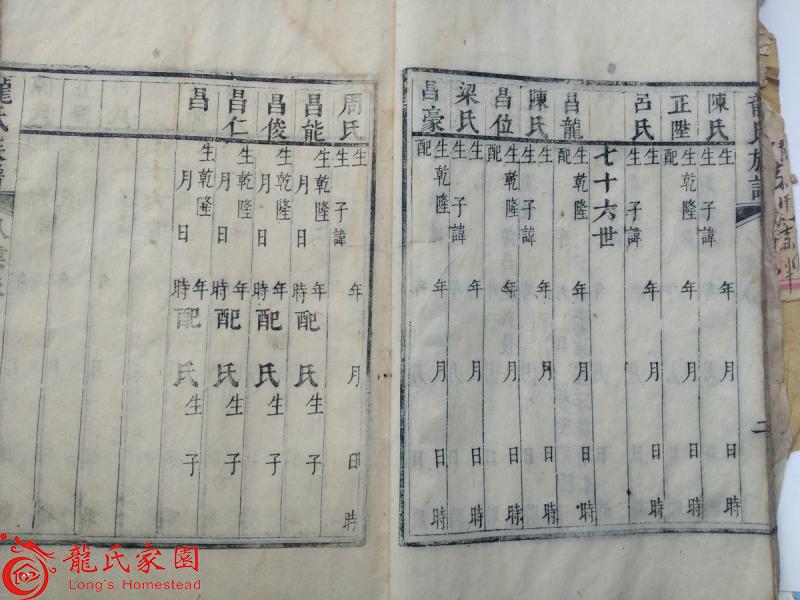 龍氏族譜
二
陳氏 生 子諱 年 月 日 時
正陞 生乾隆 年 月 日 時
配
呂氏 生 子諱 年 月 日 時
七十六世
昌龍 生乾隆 年 月 日 時
配
陳氏 生 子諱 年 月 日 時
昌位 生乾隆 年 月 日 時
配
梁氏 生 子諱 年 月 日 時
昌豪 生乾隆 年 月 日 時
配
周氏 生 子諱 年 月 日 時
昌能 生乾隆 年
月 日 時配 氏 生 子
昌俊 生乾隆 年
月 日 時配 氏 生 子
昌仁 生乾隆 年
月 日 時配 氏 生 子
昌 生乾隆 年
月 日 時配 氏 生 子
龍氏族譜
龍氏家園
Long's Homestead